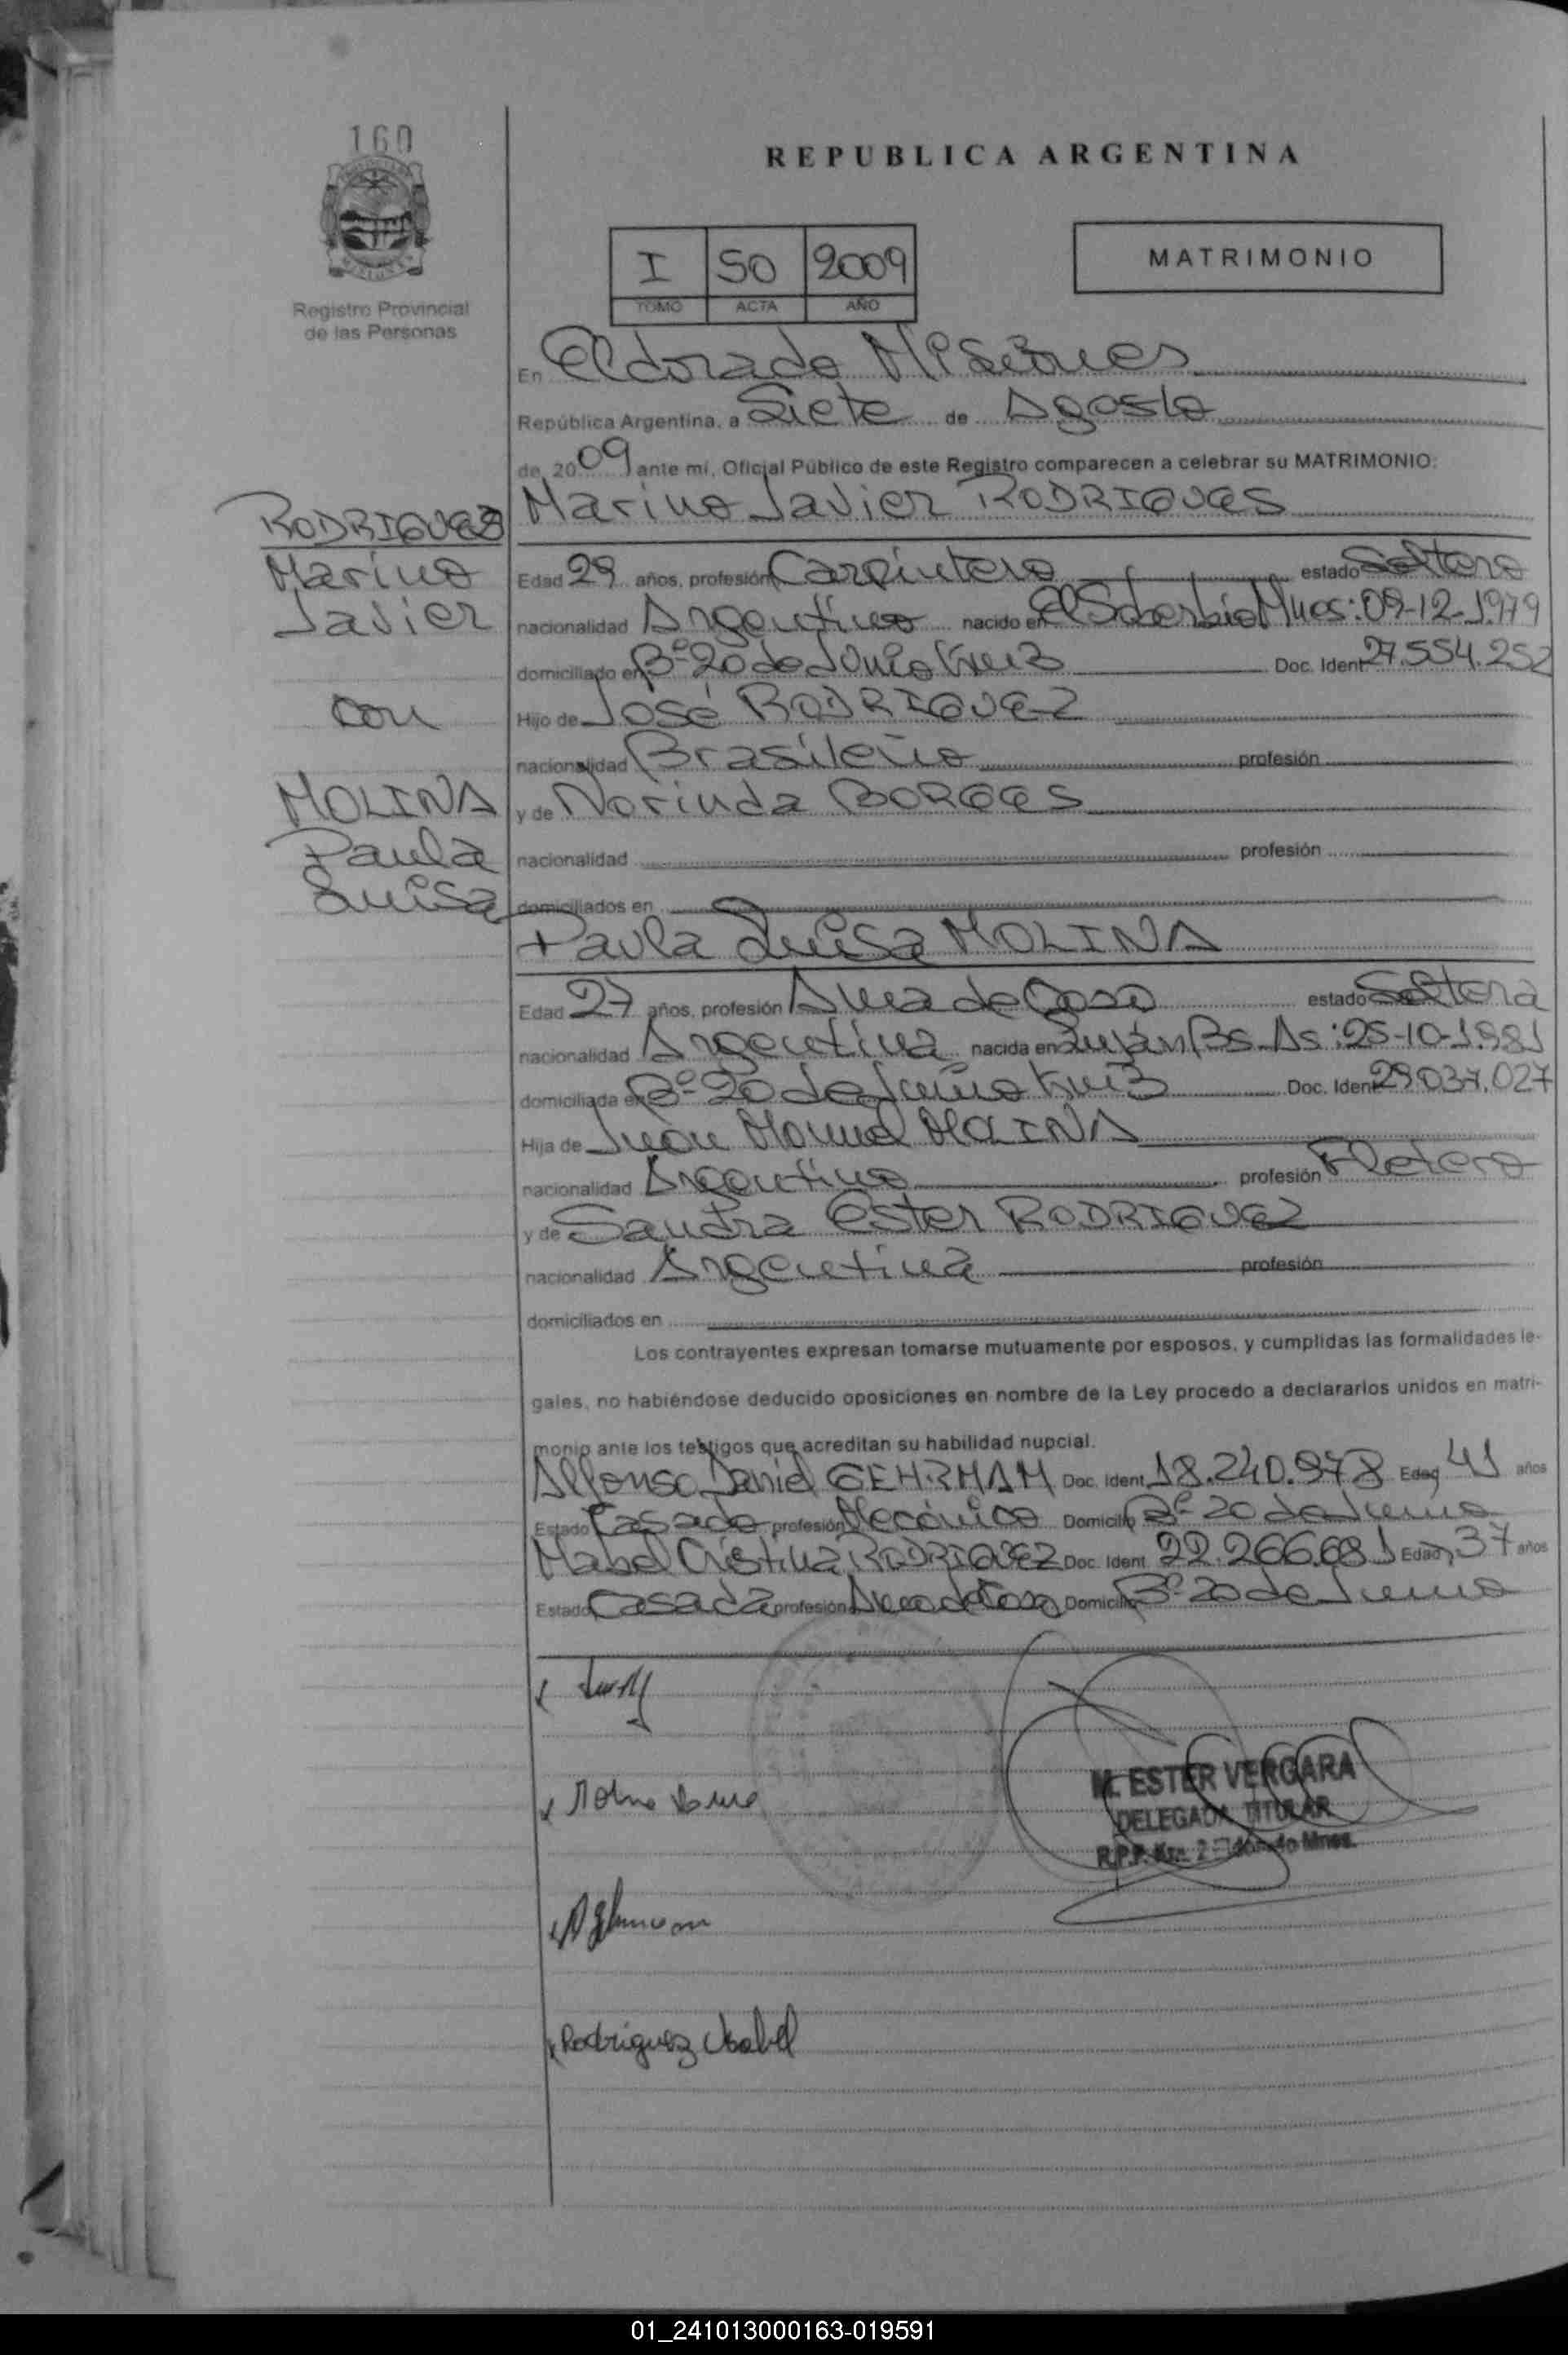 160
REPUBLICA ARGENTINA
I 50 2009
TOMO ACTA AÑO
MATRIMONIO
Registro Provincial
de las Personas
En Eldorado Misiones
República Argentina, a Siete de Agosto
de 2009 ante mi, Oficial Público de este Registro comparecen a celebrar su MATRIMONIO:
RODRIGUES
Marino
Javier
con
MOLINA
Paula
Luisa
Marino Javier RODRIGUES
Edad 29 años, profesión Carpintero estado Soltero
nacionalidad Argentino nacido en El Soberbio Mnes: 09-12-1979
domiciliado en Bº 20 de Junio Km 3 Doc. Ident 27.554.252
Hijo de José RODRIGUEZ
nacionalidad Brasileño profesión
y de Norinda BORGES
nacionalidad profesión
domiciliados en
Paula Luisa MOLINA
Edad 27 años, profesión Ama de Casa estado Soltera
nacionalidad Argentina nacida en Luján Bs. As: 25-10-1981
domiciliada en Bº 20 de Junio Km 3 Doc. Ident 29.037.027
Hija de Juan Manuel MOLINA
nacionalidad Argentino profesión Fletero
y de Sandra Ester RODRIGUEZ
nacionalidad Argentina profesión
domiciliados en
Los contrayentes expresan tomarse mutuamente por esposos, y cumplidas las formalidades le-
gales, no habiéndose deducido oposiciones en nombre de la Ley procedo a declararlos unidos en matri-
monio ante los testigos que acreditan su habilidad nupcial.
Alfonso Daniel GEHRMAM Doc. Ident 18.240.978 Edad 41 años
Estado Casado profesión Mecánico Domicilio Bº 20 de Junio
Mabel Cristina RODRIGUEZ Doc. Ident 22.266.681 Edad 37 años
Estado Casada profesión Ama de Casa Domicilio Bº 20 de Junio
M. ESTER VERGARA
DELEGADA TITULAR
R.P.P. Km. 2 - Eldorado Mnes.
Rodriguez Mabel
01_241013000163-019591